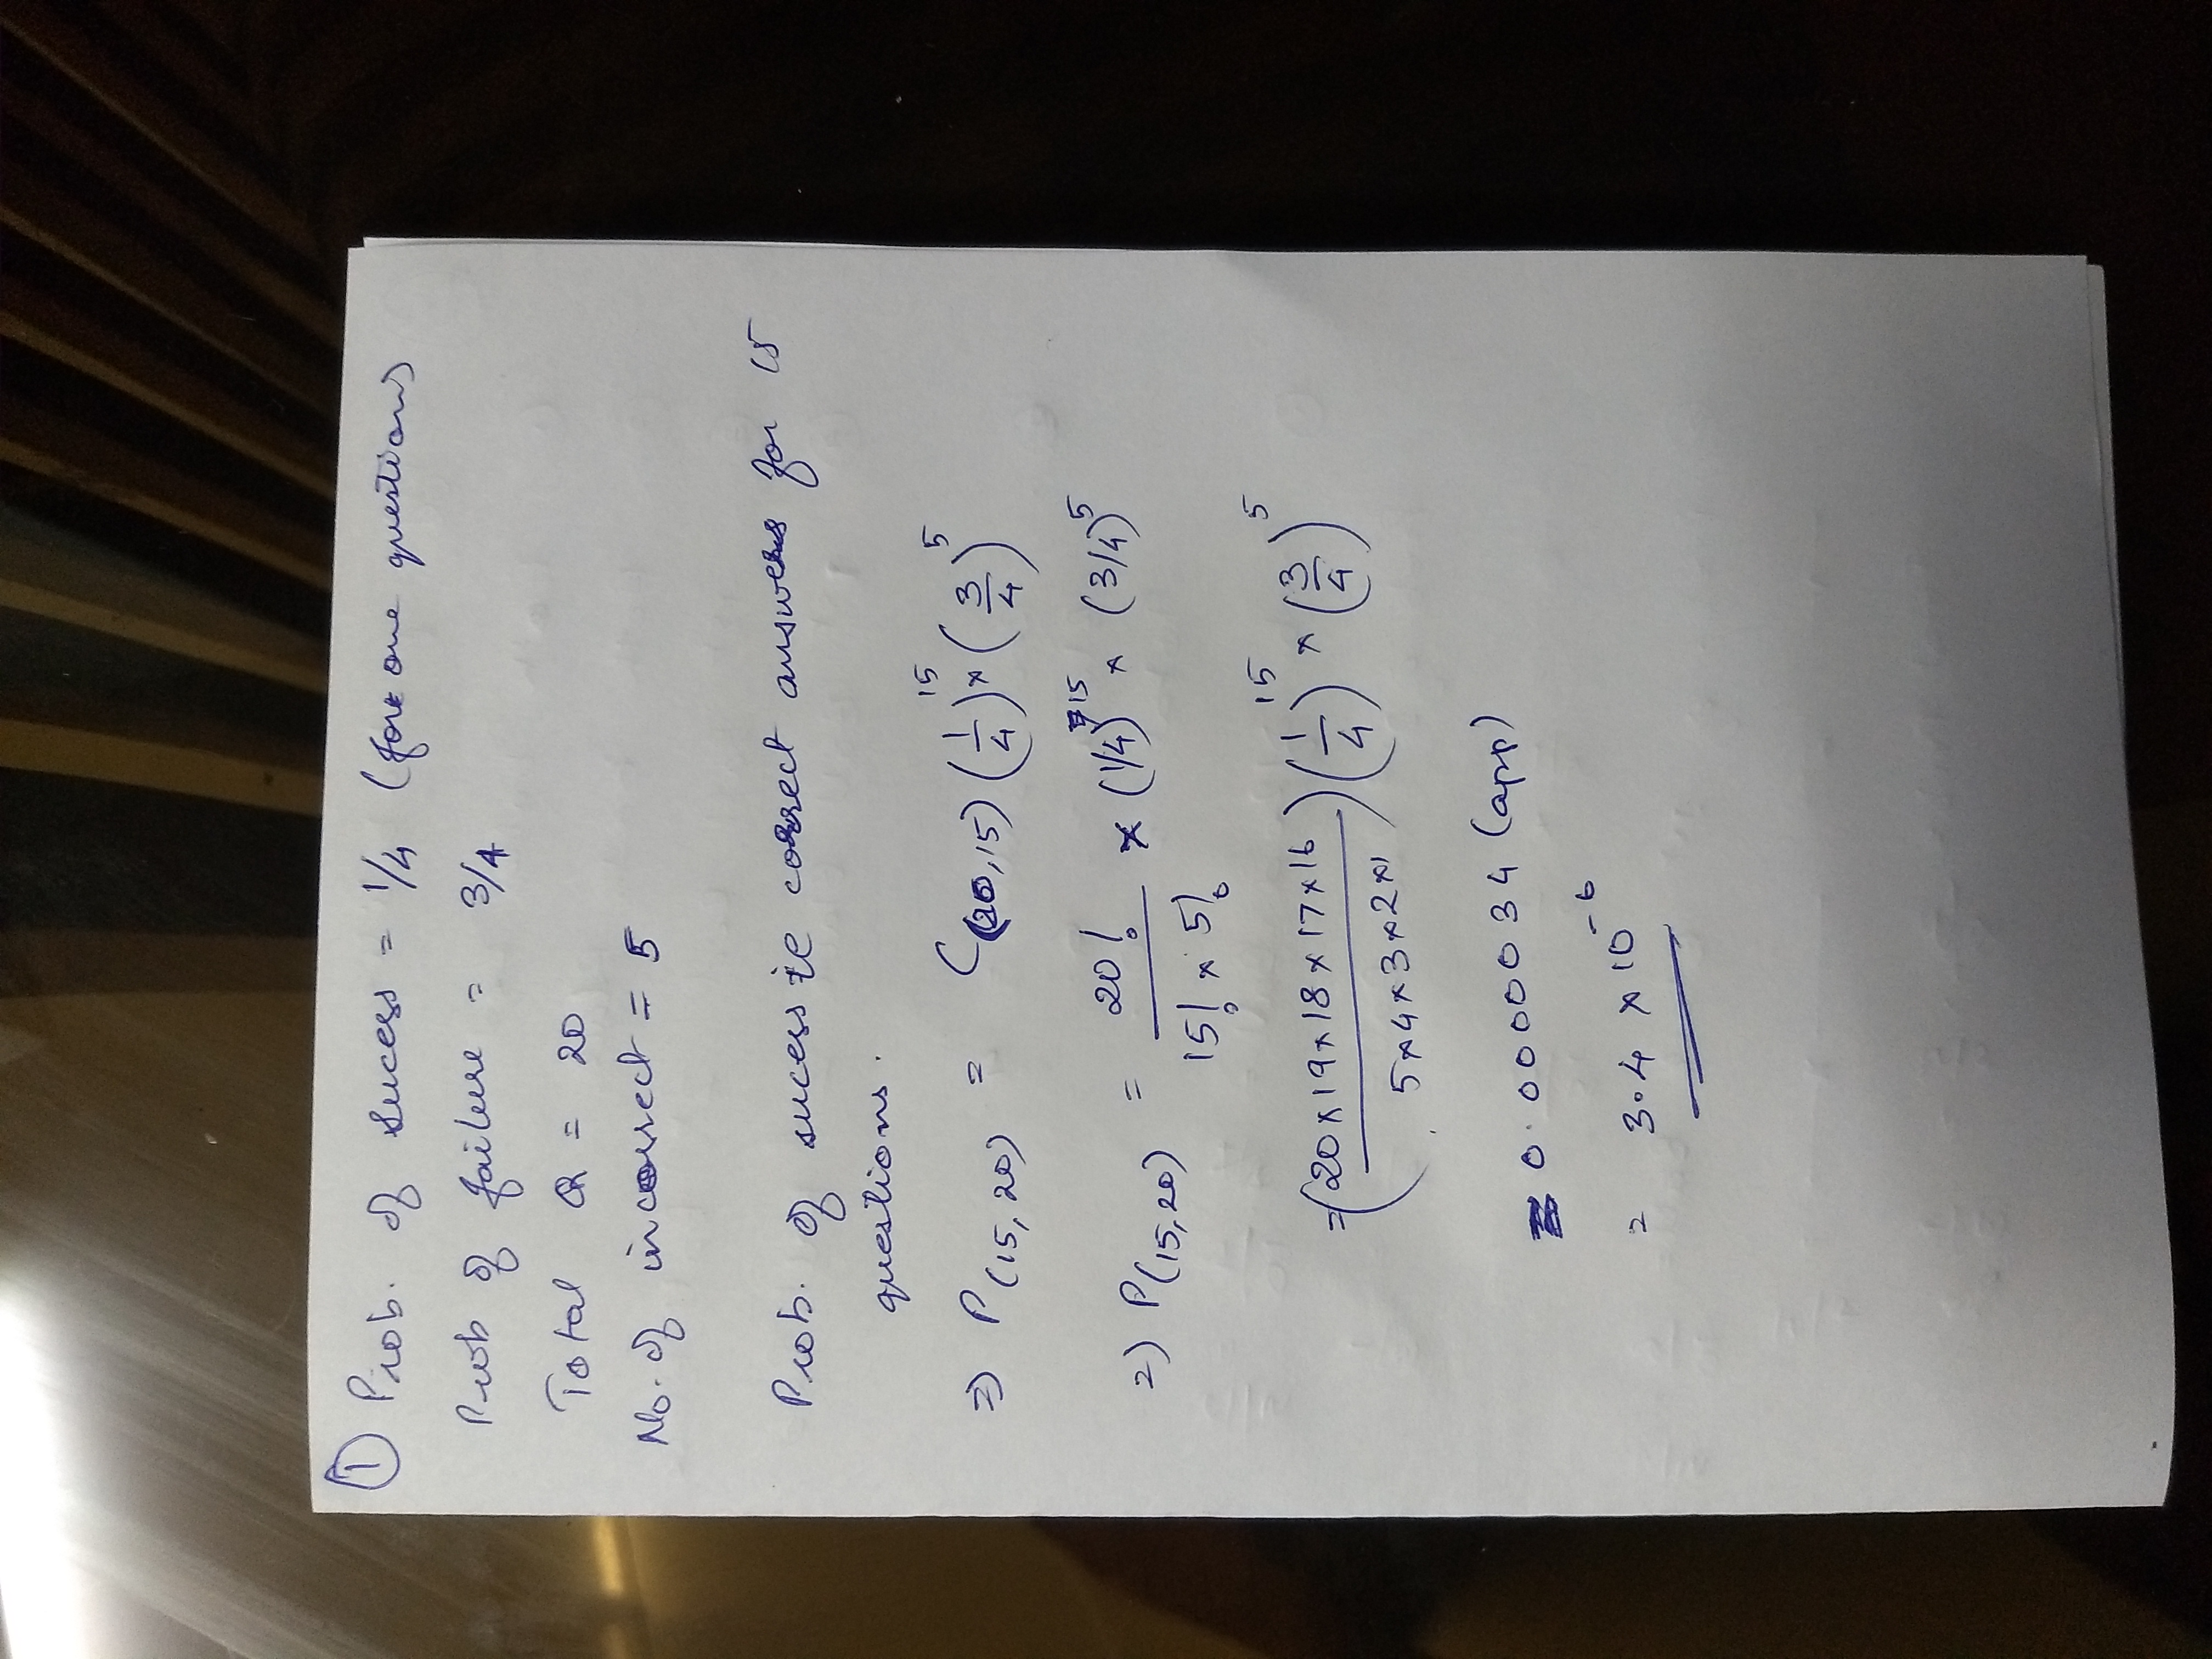 ① Prob. of success = 1/4 (for one questions)
Prob of failure = 3/4
Total Q = 20
No. of incorrect = 5
Prob. of success ie correct answers for 15
questions.
=) P(15,20) = C(20,15) (1/4)^15 × (3/4)^5
=) P(15,20) = 20!/(15! × 5!) × (1/4)^15 × (3/4)^5
= (20×19×18×17×16/5×4×3×2×1) (1/4)^15 × (3/4)^5
0.0000034 (app)
= 3.4 × 10^-6